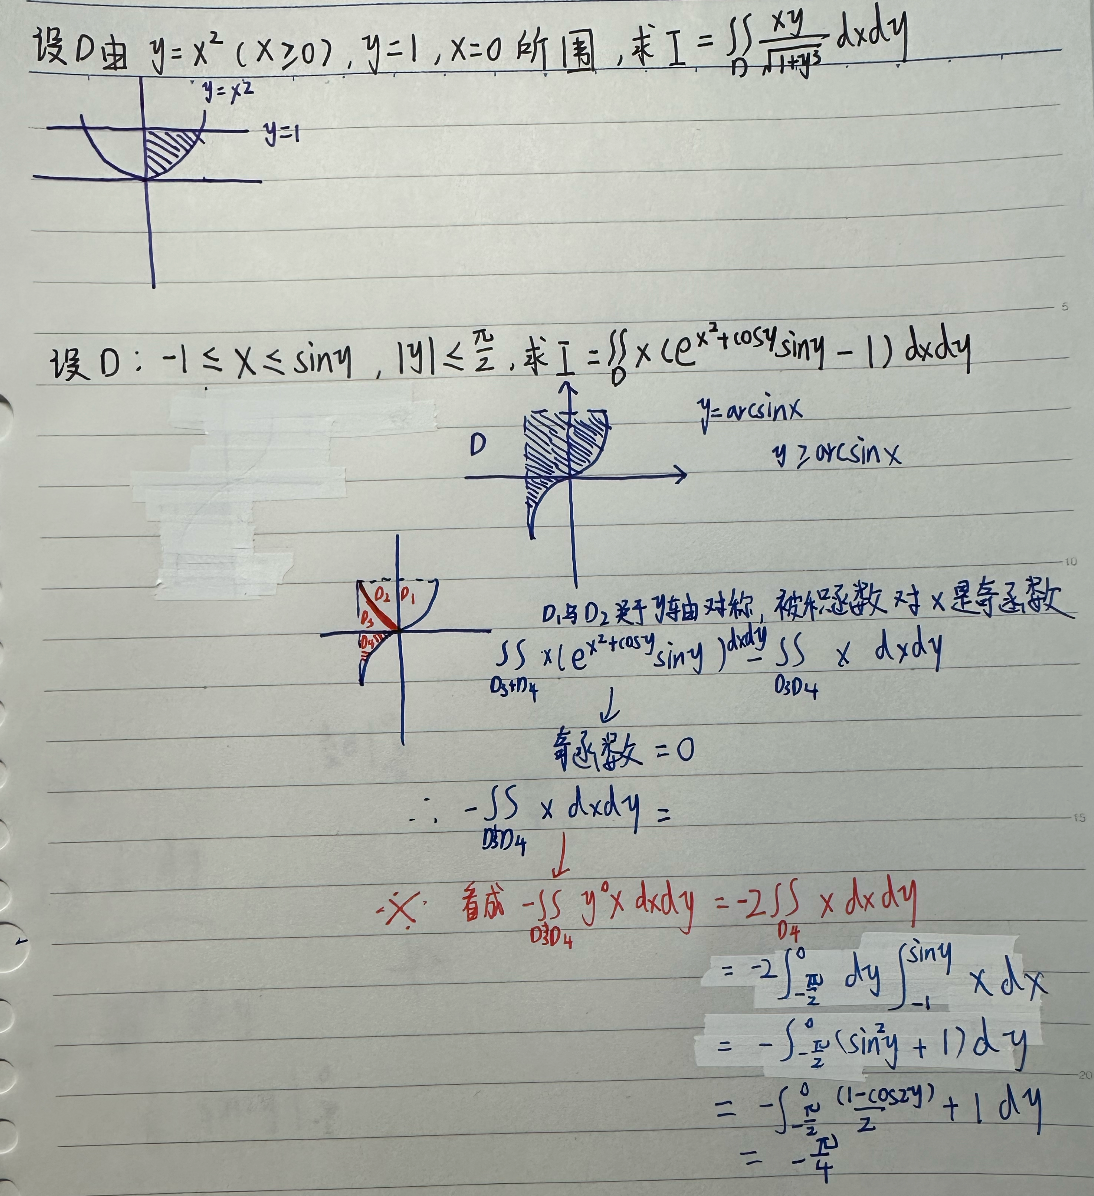 设D由 y=x² (x≥0), y=1, x=0 所围, 求 I = ∬_D xy/√(1+y³) dxdy
y=x²
y=1
5
设D: -1≤x≤siny, |y|≤π/2, 求 I = ∬_D x(e^(x²+cosy) siny - 1) dxdy
y=arcsinx
D
y≥arcsinx
10
D₂ D₁
D₃
D₄
D₁与D₂关于y轴对称, 被积函数对x是奇函数
∬_(D₃+D₄) x(e^(x²+cosy) siny) dxdy - ∬_(D₃D₄) x dxdy
↓
奇函数 = 0
∴ -∬_(D₃D₄) x dxdy =
15
↓
※ 看成 -∬_(D₃D₄) y⁰x dxdy = -2∬_(D₄) x dxdy
= -2∫_(-π/2)^0 dy ∫_(-1)^(siny) x dx
= -∫_(-π/2)^0 (sin²y + 1) dy
20
= -∫_(-π/2)^0 (1-cos2y)/2 + 1 dy
= -π/4